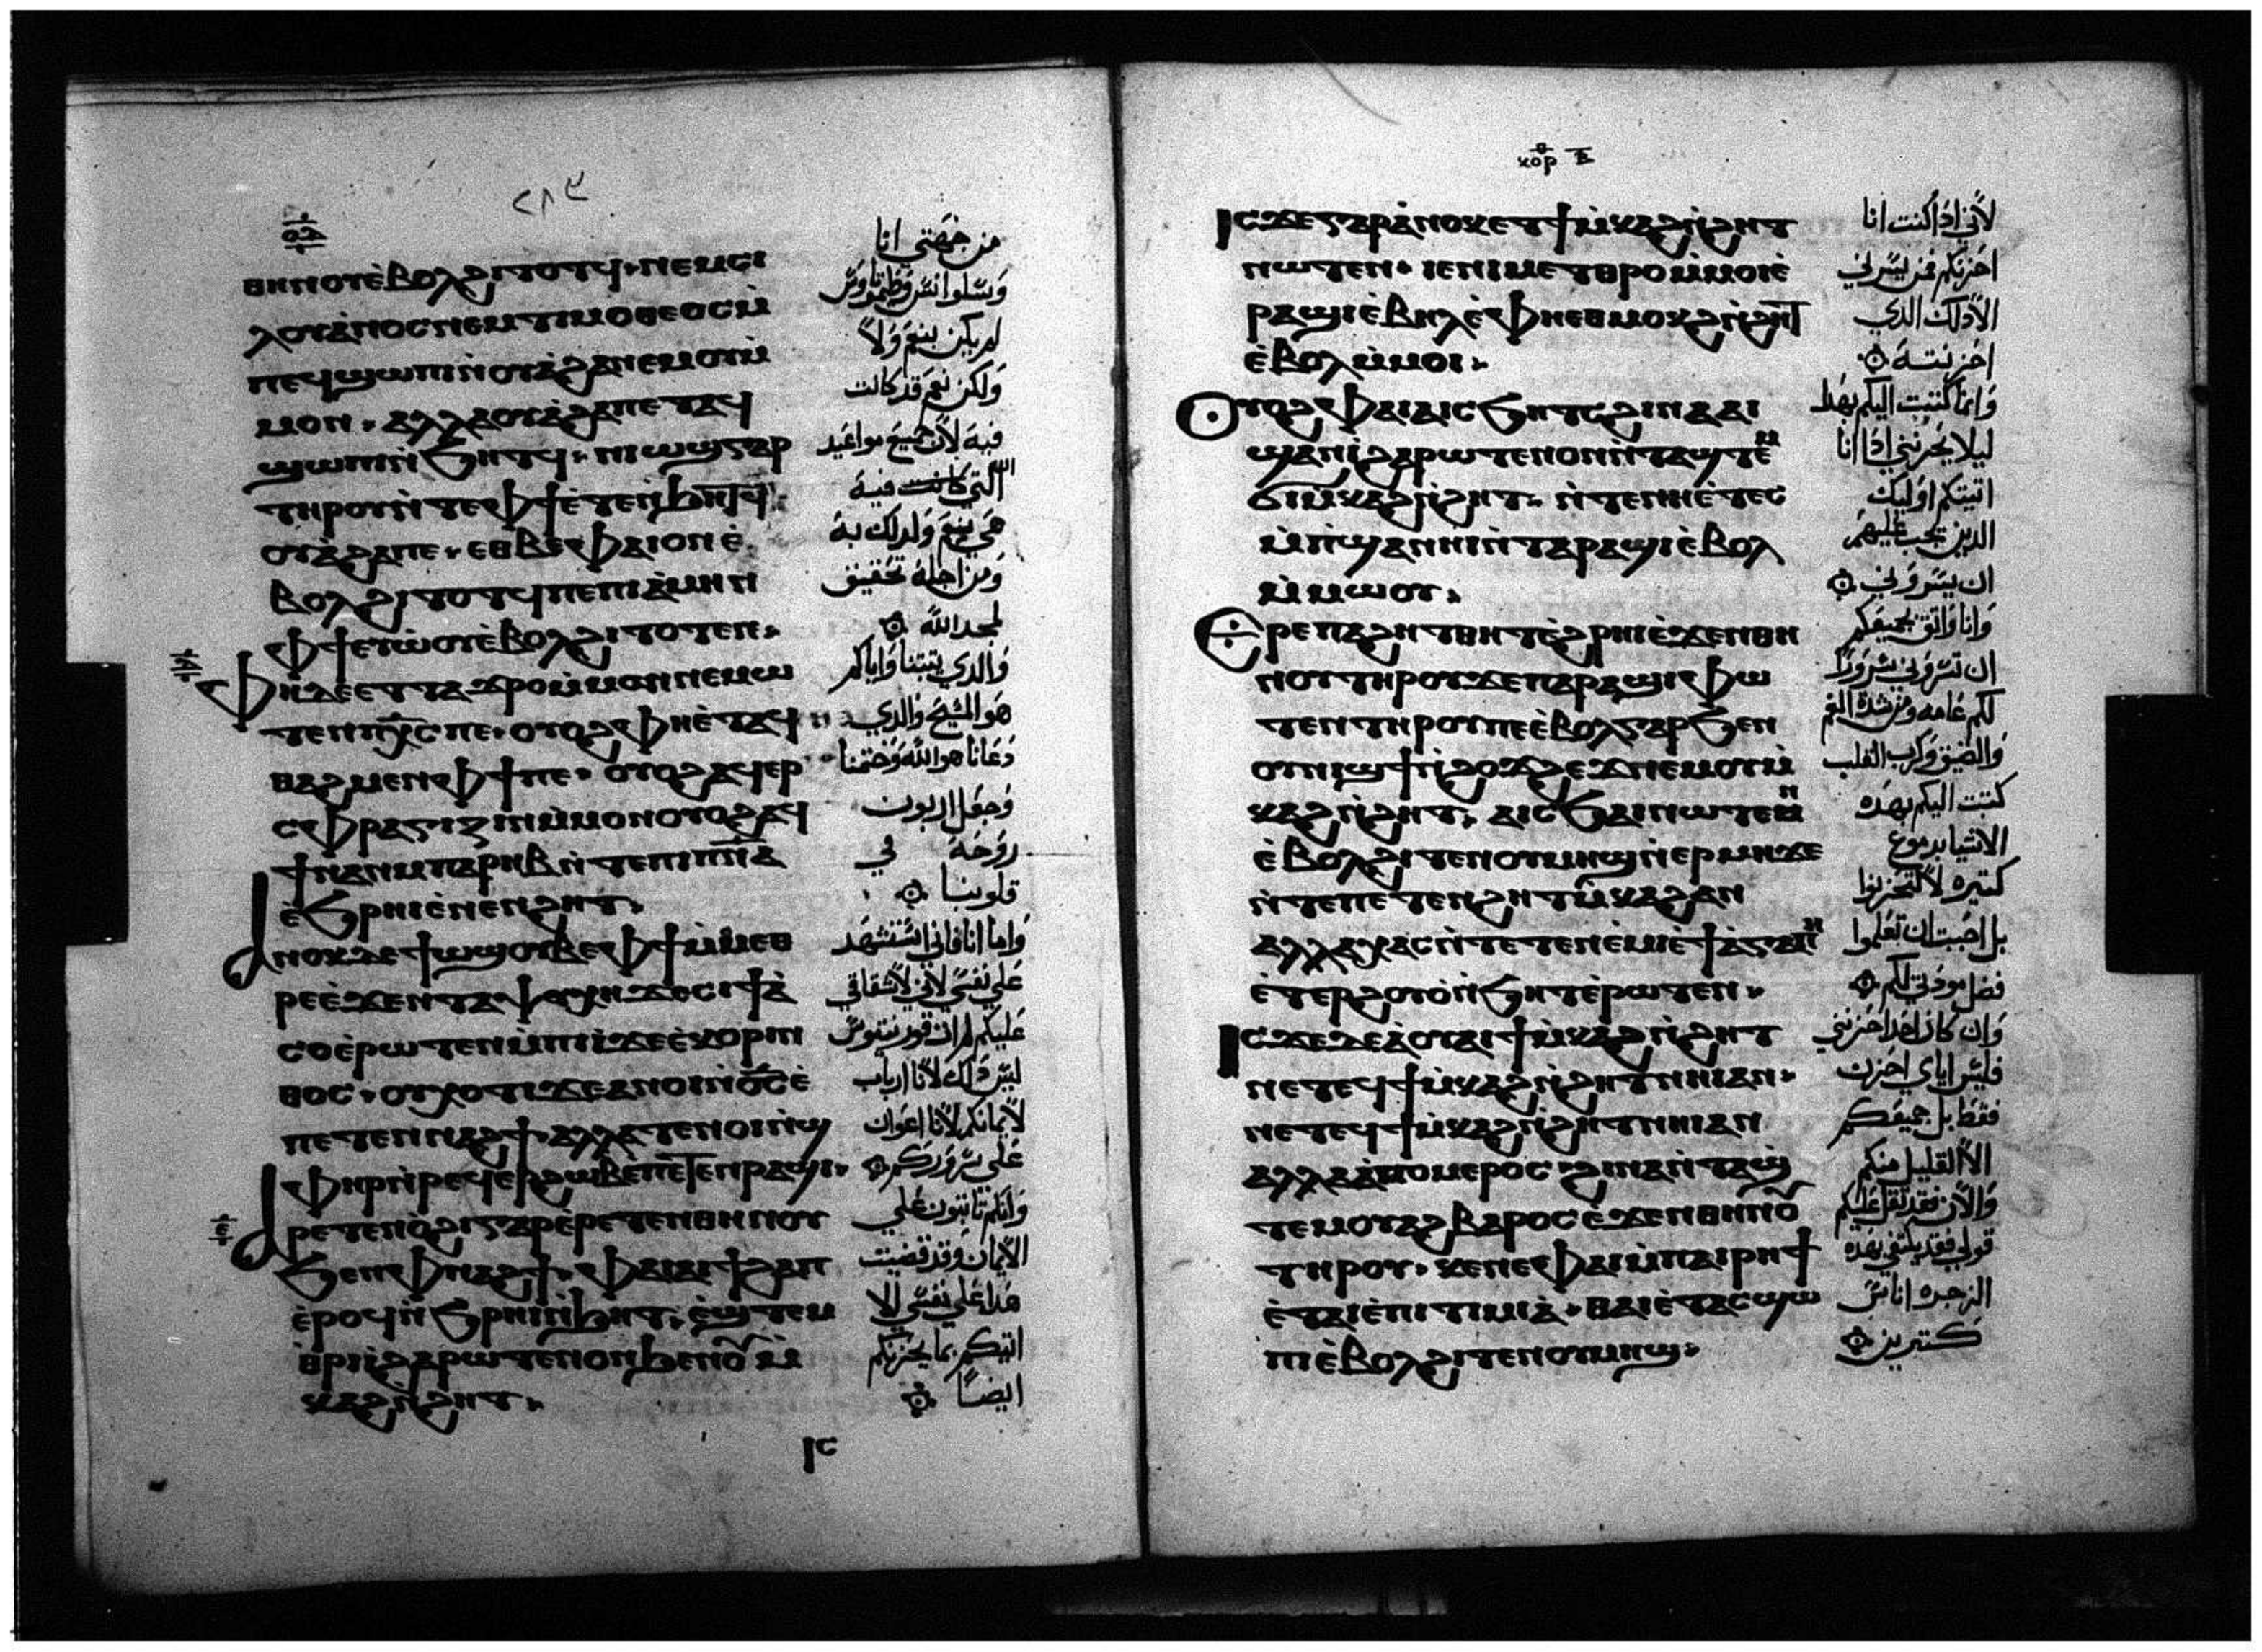 ⲑⲏⲛⲟⲩ ⲉ̀ⲃⲟⲗ ϩⲓⲧⲟⲧϥ· ⲛⲉⲙ ⲥⲓ
ⲗⲟⲩⲁⲛⲟⲥ ⲛⲉⲙ ⲧⲓⲙⲟⲑⲉⲟⲥ ⲙ̀
ⲡⲉϥϣⲱⲡⲓ ⲛ̀ⲟⲩⲁ̀ϩⲁ ⲛⲉⲙ ⲟⲩⲙ̀
ⲙⲟⲛ· ⲁⲗⲗⲁ ⲟⲩⲁ̀ϩⲁ ⲡⲉⲧⲁϥ
ϣⲱⲡⲓ ⲛ̀ϧⲏⲧϥ· ⲛⲓⲱϣ ⲅⲁⲣ
ⲧⲏⲣⲟⲩ ⲛ̀ⲧⲉ ⲫϯ ⲉ̀ⲧⲉⲛ̀ϧⲏⲧϥ
ⲟⲩⲁ̀ϩⲁ ⲡⲉ· ⲉⲑⲃⲉ ⲫⲁⲓ ⲟⲛ ⲉ̀
ⲃⲟⲗ ϩⲓⲧⲟⲧϥ ⲡⲉ ⲡⲓⲁ̀ⲙⲏⲛ
ⲫϯ ⲉⲩⲱ̀ⲟⲩ ⲉ̀ⲃⲟⲗ ϩⲓⲧⲟⲧⲉⲛ·
ⲫⲏ ⲇⲉ ⲉⲧⲧⲁϫⲣⲟ ⲙ̀ⲙⲟⲛ ⲛⲉⲙⲱ
ⲧⲉⲛ ⲡⲭ̅ⲥ̅ ⲡⲉ· ⲟⲩⲟϩ ⲫⲏ ⲉ̀ⲧⲁϥ
ⲑⲁϩⲙⲉⲛ ⲫϯ ⲡⲉ· ⲟⲩⲟϩ ⲁϥⲉⲣ
ⲥⲫⲣⲁⲅⲓⲍⲓⲛ ⲙ̀ⲙⲟⲛ ⲟⲩⲟϩ ⲁϥ
ϯ ⲛⲁⲛ ⲙ̀ⲡⲁⲣⲏⲃ ⲛ̀ⲧⲉ ⲡⲓⲡ̅ⲛ̅ⲁ̅
ⲉ̀ϧⲣⲏⲓ ⲉ̀ⲛⲉⲛϩⲏⲧ·
ⲁⲛⲟⲕ ⲇⲉ ϯⲱϣ ⲟⲩⲃⲉ ⲫϯ ⲙ̀ⲙⲉⲑ
ⲣⲉ ⲉ̀ϫⲉⲛ ⲧⲁⲯⲩⲭⲏ ϫⲉ ⲉⲓϯⲁ̀
ⲥⲟ ⲉ̀ⲣⲱⲧⲉⲛ ⲙ̀ⲡⲓⲓ̀ ϫⲉ ⲉ̀ⲕⲟⲣⲓⲛ
ⲑⲟⲥ· ⲟⲩⲭⲟⲧⲓ ϫⲉ ⲁⲛⲟⲓ ⲛ̀ⲟ̅ⲥ̅ ⲉ̀
ⲡⲉⲧⲉⲛⲛⲁϩϯ· ⲁⲗⲗⲁ ⲧⲉⲛⲟⲓ ⲛ̀ϣ
ⲫⲏⲣ ⲛ̀ⲣⲉϥⲉⲣϩⲱⲃ ⲉ̀ⲡⲉⲧⲉⲛⲣⲁϣⲓ·
ⲁⲣⲉⲧⲉⲛⲟ̀ϩⲓ ⲅⲁⲣ ⲉ̀ⲣⲉⲧⲉⲛ ⲑⲏⲛⲟⲩ
ϧⲉⲛ ⲫⲛⲁϩϯ· ⲫⲁⲓ ⲁⲓϯϩⲁⲡ
ⲉ̀ⲣⲟϥ ⲛ̀ϧⲣⲏⲓ ⲛ̀ϧⲏⲧ· ⲉ̀ϣⲧⲉⲙ
ⲑⲣⲓⲓ̀ ϩⲁⲣⲱⲧⲉⲛ ⲟⲛ ϧⲉⲛ ⲟⲩⲙ̀
ⲕⲁϩ ⲛ̀ϩⲏⲧ·
ⲓⲥ
من جهتي انا
وسلوانس وطيموتاوس
لم يكن بنعم ولا
ولكن نعم قد كانت
فيه لان جميع مواعيد
الله التي كانت فيه
هي بنعم ولدلك به
ومن اجله تحقيق
لمجد الله
والدي يتبتنا واياكم
هو المسيح والدي
دعانا هو الله وختمنا
وجعل اربون
روحه في
قلوبنا
واما انا فاني استشهد
علي نفسي لاني لاشفاقي
عليكم لم ات قورنتوس
ليس دلك لانا ارباب
لايمانكم لانا اعوان
علي سروركم
وانكم تابتون علي
الايمان وقد قضيت
هدا علي نفسي الا
اتيكم بما يحزنكم
ايضا
ⲕⲟⲣ ⲃ̅
ⲓⲥϫⲉ ⲅⲁⲣ ⲁ̀ⲛⲟⲕ ⲉⲧϯⲙ̀ⲕⲁϩ ⲛ̀ϩⲏⲧ
ⲛⲱⲧⲉⲛ· ⲓⲉ ⲛⲓⲙ ⲉⲧⲑⲣⲟ ⲙ̀ⲙⲟⲓ ⲉ̀
ⲣⲁϣⲓ ⲉ̀ⲃⲏⲗ ⲉ̀ⲫⲏ ⲉⲑⲙⲟⲕϩ ⲛ̀ϩⲏⲧ
ⲉ̀ⲃⲟⲗ ⲙ̀ⲙⲟⲓ·
ⲟⲩⲟϩ ⲫⲁⲓ ⲁⲓⲥϧⲏⲧϥ ϩⲓⲛⲁ ⲁⲓ
ϣⲁⲛⲓ̀ ϩⲁⲣⲱⲧⲉⲛ ⲟⲛ ⲛ̀ⲧⲁϣⲧⲉⲙ
ϭⲓ ⲙ̀ⲕⲁϩ ⲛ̀ϩⲏⲧ· ⲛ̀ⲧⲉⲛⲛⲏ ⲉ̀ⲧⲉⲥ
ⲙ̀ⲡϣⲁ ⲛⲏⲓ ⲛ̀ⲧⲁⲣⲁϣⲓ ⲉ̀ⲃⲟⲗ
ⲙ̀ⲙⲱⲟⲩ·
ⲉⲣⲉ ⲡⲁϩⲏⲧ ⲑⲏⲧ ⲉ̀ϩⲣⲏⲓ ⲉ̀ϫⲉⲛ ⲑⲏ
ⲛⲟⲩ ⲧⲏⲣⲟⲩ ϫⲉ ⲡⲁⲣⲁϣⲓ ⲫⲱ
ⲧⲉⲛ ⲧⲏⲣⲟⲩ ⲡⲉ ⲉ̀ⲃⲟⲗ ⲅⲁⲣ ϧⲉⲛ
ⲟⲩⲛⲓϣϯ ⲛ̀ϩⲟϫϩⲉϫ ⲛⲉⲙ ⲟⲩⲙ̀
ⲕⲁϩ ⲛ̀ϩⲏⲧ· ⲁⲓⲥϧⲁⲓ ⲛⲱⲧⲉⲛ
ⲉ̀ⲃⲟⲗ ϩⲓⲧⲉⲛ ⲟⲩⲙⲏϣ ⲛ̀ⲉⲣⲙⲏ ϫⲉ
ⲛ̀ⲧⲉ ⲡⲉⲧⲉⲛϩⲏⲧ ⲙ̀ⲕⲁϩ ⲁⲛ
ⲁⲗⲗⲁ ϫⲁⲥ ⲛ̀ⲧⲉⲧⲉⲛⲉ̀ⲙⲓ ⲉ̀ϯⲁ̀ⲅⲁⲡⲏ
ⲉ̀ⲧⲉⲣϩⲟⲩⲟ̀ ⲛ̀ϧⲏⲧ ⲉ̀ⲣⲱⲧⲉⲛ·
ⲓⲥϫⲉ ⲇⲉ ⲁ̀ ⲟⲩⲁⲓ ϯⲙ̀ⲕⲁϩ ⲛ̀ϩⲏⲧ
ⲛⲉⲧⲉϥϯⲙ̀ⲕⲁϩ ⲛ̀ϩⲏⲧ ⲛⲏⲓ ⲁⲛ·
ⲛⲉⲧⲉϥϯⲙ̀ⲕⲁϩ ⲛ̀ϩⲏⲧ ⲛⲏⲓ ⲁⲛ
ⲁⲗⲗⲁ ⲁ̀ⲡⲟ ⲙⲉⲣⲟⲥ· ϩⲓⲛⲁ ⲛ̀ⲧⲁϣ
ⲧⲉⲙⲟⲩⲁϩ ⲃⲁⲣⲟⲥ ⲉ̀ϫⲉⲛ ⲑⲏⲛⲟⲩ
ⲧⲏⲣⲟⲩ· ⲕⲉⲛ ⲉ̀ⲫⲁⲓ ⲙ̀ⲡⲁⲓⲣⲏϯ
ⲉ̀ⲧⲁⲓⲉ̀ⲡⲓⲧⲓⲙⲓⲁ̀· ⲑⲁⲓ ⲉ̀ⲧⲁⲥϣⲱ
ⲡⲓ ⲉ̀ⲃⲟⲗ ϩⲓⲧⲉⲛ ⲟⲩⲙⲏϣ·
لاني ادا كنت انا
احزنكم فمن يسرني
الا دلك الدي
احزنته
وانما كتبت اليكم بهدا
ليلا يحزنني ادا انا
اتيتكم اوليك
الدين يجب عليهم
ان يسروني
وانا واتق بجميعكم
ان تسروني سرورا
لكم عامه ومن شدة الغم
والضيق وكرب القلب
كتبت اليكم بهده
الاشيا بدموع
كتيره لا لتحزنوا
بل احببت ان تعلموا
فضل مودتي لكم
وان كان احدا احزنني
فليس اياي احزن
فقط بل جميعكم
الا القليل منكم
والان فقد تقل عليكم
قولي فقد يكتفي بهده
الزجره اناس
كتيرين